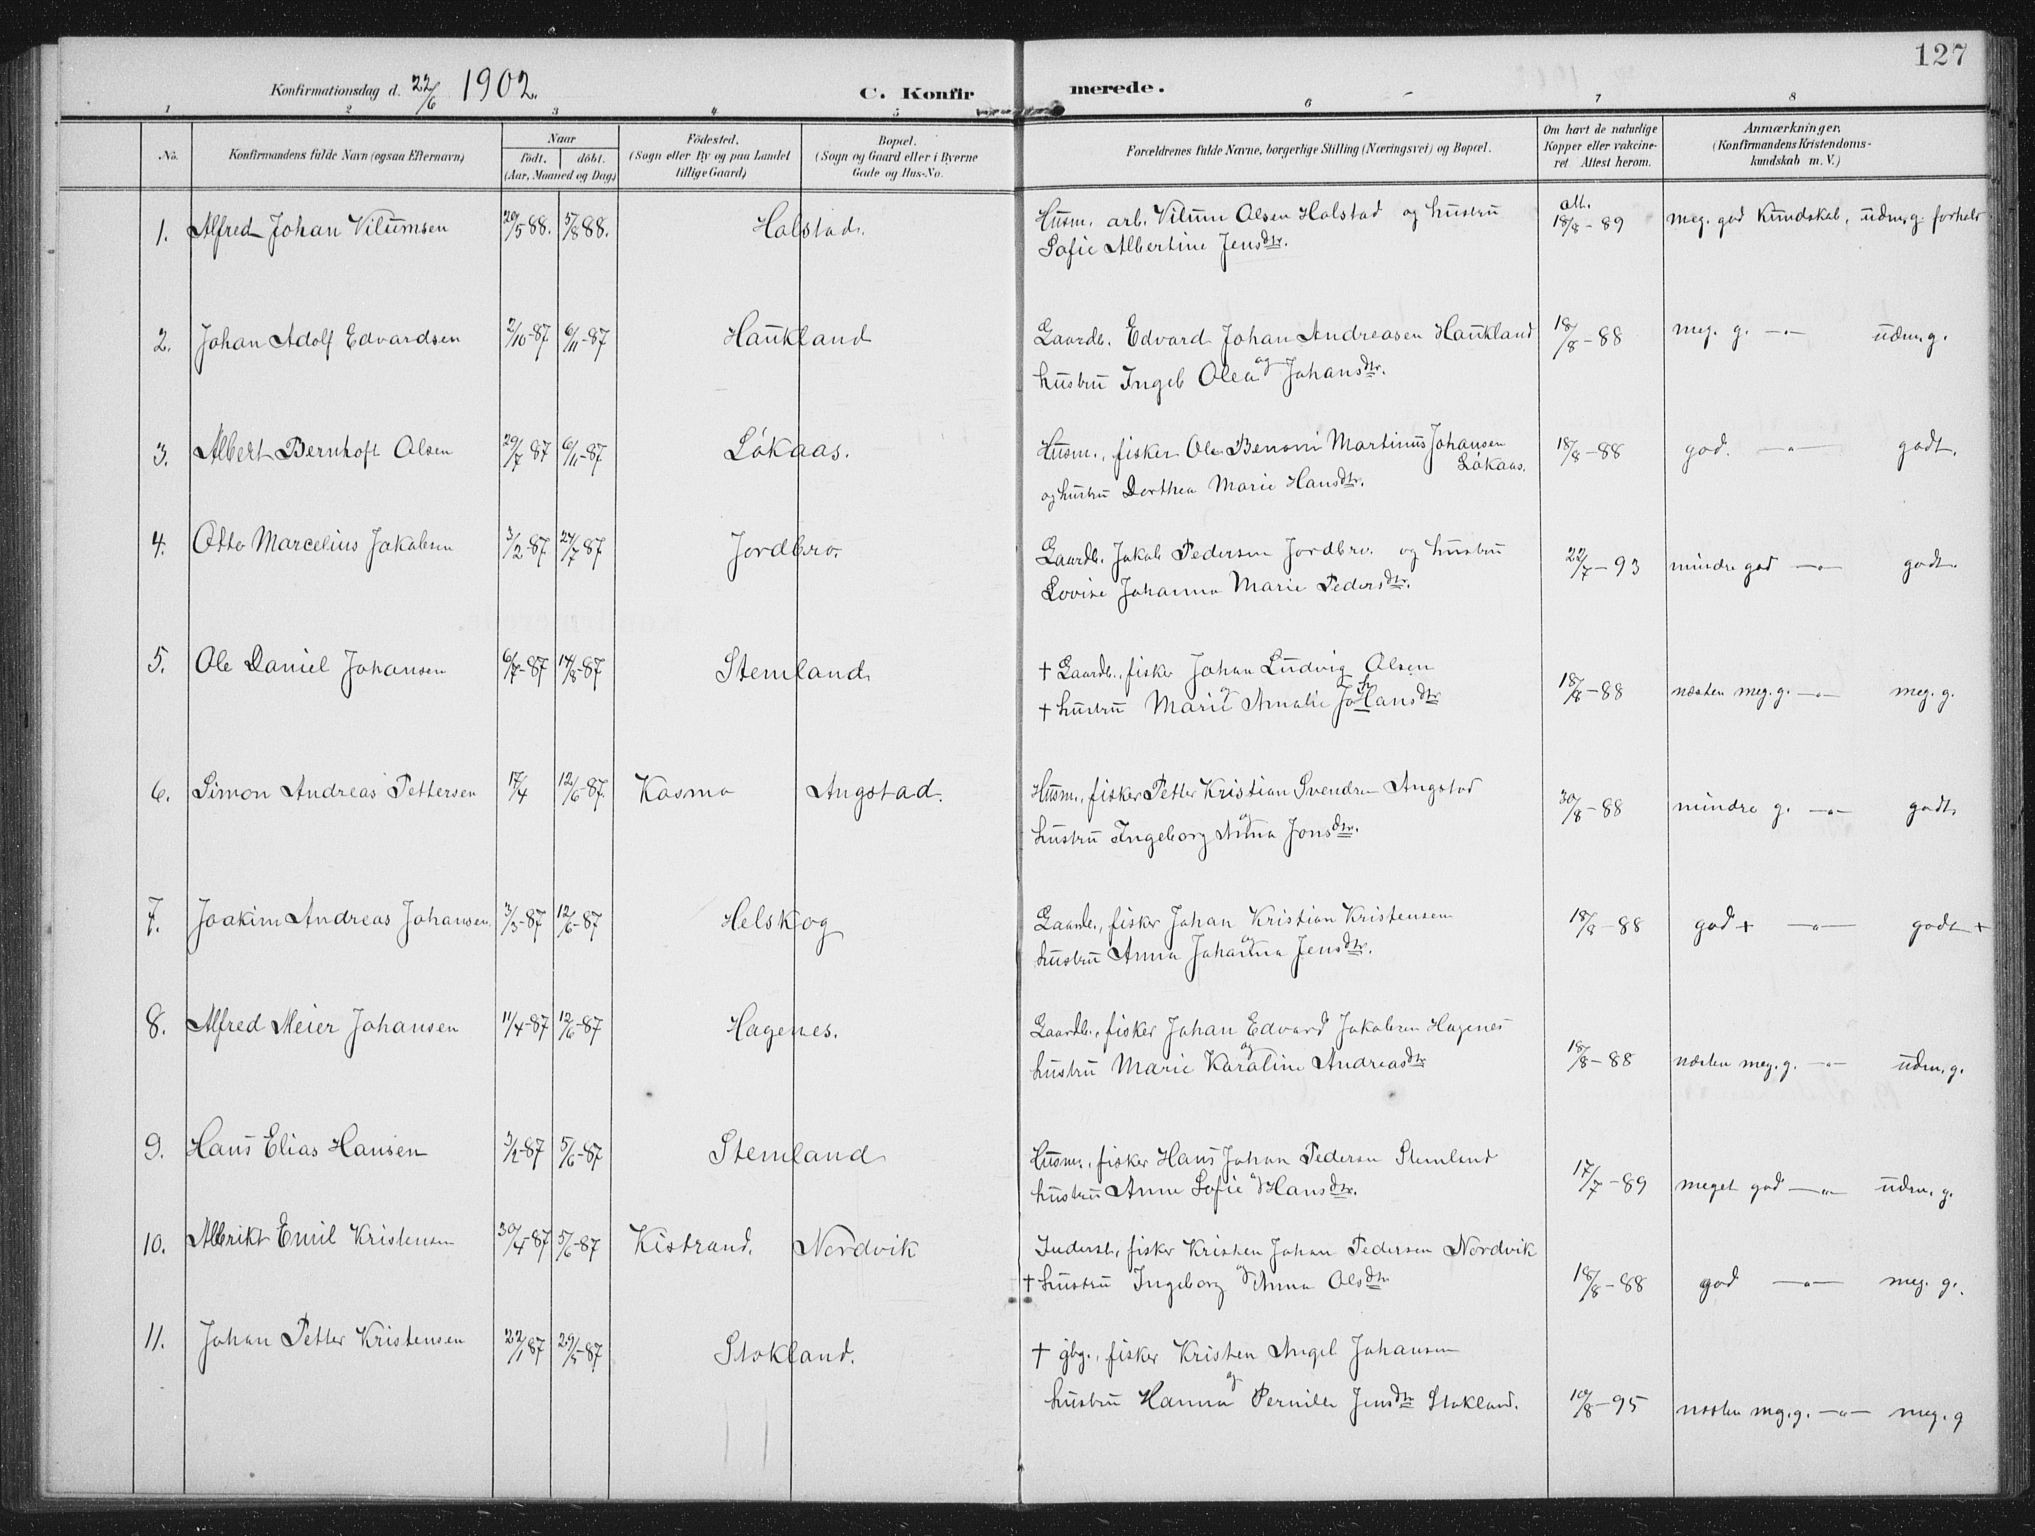 127
Konfirmationsdag d. 22/6 1902. C. Konfirmerede.
1 2 3 4 5 6 7 8
No. Konfirmandens fulde Navn (ogsaa Efternavn) Naar födt. döbt. (Aar, Maaned og Dag) Födested. (Sogn eller By og paa Landet tillige Gaard) Bopæl. (Sogn og Gaard eller i Byerne Gade og Hus-No. Forældrenes fulde Navne, borgerlige Stilling (Næringsvei) og Bopæl. Om havt de naturlige Kopper eller vakcineret Attest herom. Anmærkninger. (Konfirmandens Kristendomskundskab m. V.)
1. Alfred Johan Vilumsen 20/5 88. 5/8 88. Halstad. Husm. arb. Vilum Olsen Halstad og hustru att. 18/8-89 meg. god Kundskab, udm. g. forhold
Sofie Albertine Jensdtr.
2. Johan Adolf Edvardsen 2/10-87 6/11-87 Haukland Gaardb. Edvard Johan Andreasen Haukland 18/8-88 meg. g. -"- udm. g.
og hustru Ingeb Olea Johansdtr.
3. Albert Bernhoft Olsen 29/7 87 6/11-87 Lökaas. Husm., fisker Ole Benoni Martinus Johansen Lökaas. 18/8-88 god. -"- godt.
og hustru Dorthea Marie Hansdtr.
4. Otto Marcelius Jakobsen 3/2-87 24/7-87 Jordbro. Gaardb. Jakob Pedersen Jordbro. og hustru 22/7-93 mindre god -"- godt.
Lovise Johanna Marie Pedersdtr.
5. Ole Daniel Johansen 6/7-87 14/8-87 Stemland. + Gaardb., fisker Johan Ludvig Olsen
+ hustru Marie Amalie Johansdtr 18/8-88 næsten meg. g. -"- meg. g.
6. Simon Andreas Pettersen 17/4 12/6-87. Kasmo Angstad. Husm., fisker Petter Kristian Svendsen Angstad 30/8-88 mindre g. -"- godt.
og hustru Ingeborg Anna Jonsdtr.
7. Joakim Andreas Johansen. 3/3-87 12/6-87 Helskog Gaardb., fisker Johan Kristian Kristensen 18/8-88 god+ -"- godt+
og hustru Anna Johanna Jensdtr.
8. Alfred Meier Johansen 11/4-87 12/6-87 Hagenes. Gaardb., fisker Johan Edvard Jakobsen Hagenes
og hustru Marie Karoline Andreasdtr 18/8-88 næsten meg. g. -"- udm. g.
9. Hans Elias Hansen 3/2-87 5/6-87 Stemland Husm., fisker Hans Johan Pedersen Stemland 17/7-89 meget god -"- udm. g.
og hustru Anne Sofie Hansdtr.
10. Albrikt Emil Kristensen 30/4-87 5/6-87 Kistrand. Nordvik Inderst., fisker Kristen Johan Pedersen Nordvik
+ og hustru Ingeborg Anna Olsdtr 18/8-88 god -"- meg. g.
11. Johan Petter Kristensen 22/1 87 29/5-87 Stokland. + gbg., fisker Kristen Angel Johansen
og hustru Hanna Pernille Jensdtr Stokland. 10/8-95 næsten meg. g. -"- meg. g